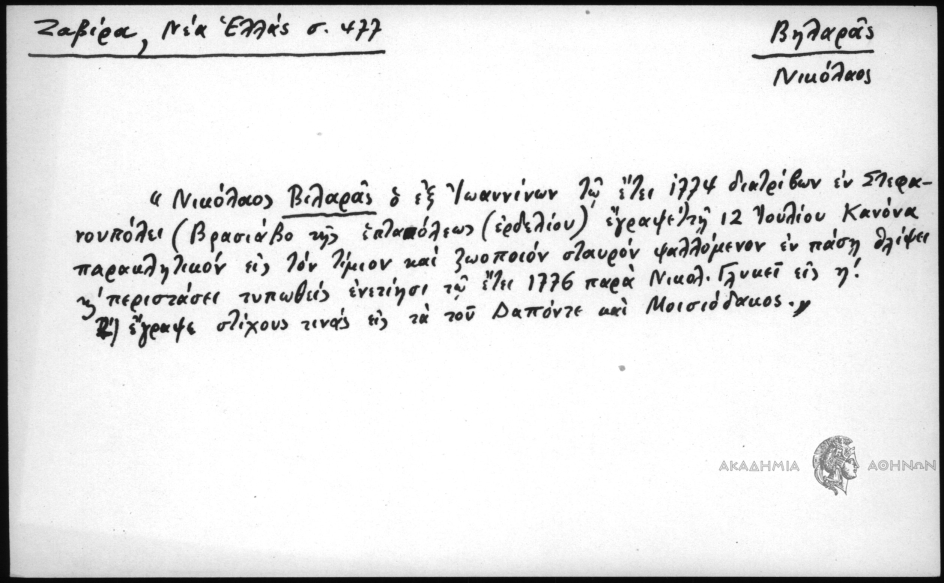 Ζαβίρα, Νέα Ἑλλάς σ. 477
Βηλαρᾶς
Νικόλαος
“ Νικόλαος Βιλαρᾶς ὁ ἐξ Ἰωαννίνων τῷ ἔτει 1774 διατρίβων ἐν Στεφα-
νουπόλει (Βρασιάβο τῆς ἑπταπόλεως (ἐρδελίου) ἔγραψε τῇ 12 Ἰουλίου Κανόνα
παρακλητικόν εἰς τόν τίμιον καί ζωοποιόν σταυρόν ψαλλόμενον ἐν πάσῃ θλίψει
περιστάσει τυπωθείς ἐνετίησι τῷ ἔτει 1776 παρά Νικολ. Γλυκεῖ εἰς η!
ἔγραψε στίχους τινάς εἰς τά τοῦ Δαπόντε καί Μοισιόδακος.„
ΑΚΑΔΗΜΙΑ ΑΘΗΝΩΝ